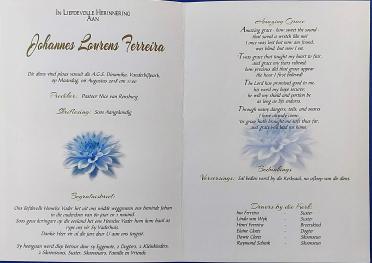 In Liefdevolle Herinnering
Aan
Johannes Lourens Ferreira
Die diens vind plaas vanuit die A.G.S. Dinamika, Vanderbijlpark,
op Maandag, Augustus om
Prediker: Pastoor Nico van Rensburg
Skriflesing: Soos Aangekondig
Begrafnisbrief:
Ons liefdevolle Hemelse Vader het uit ons midde weggeneem ons beminde Johan
in die ouderdom van jaar en maand.
Sy heengaan word diep betreur deur sy Eggenote, 2 Dogters, 2 Kleinkinders,
2 Skoonseuns, Suster, Skoonsusters, Familie en Vriende
Amazing Grace
Amazing grace how sweet the sound
that saved a wretch like me!
I once was lost but now am found,
was blind, but now I see.
'Twas grace that taught my heart to fear,
and grace my fears relieved;
how precious did that grace appear
the hour I first believed!
The Lord has promised good to me,
his word my hope secures;
he will my shield and portion be
as long as life endures.
Through many dangers, toils, and snares
I have already come;
'tis grace hath brought me safe thus far,
and grace will lead me home.
Bedankings
Verversings: Sal bedien word by die Kerksaal, na afloop van die diens.
Draers by die Kerk:
Ina Ferreira - Suster
Linda van Wyk - Suster
Henri Ferreira - Broerskind
Elaine Cloete - Dogter
Dawie Cloete - Skoonseun
Raymond Schenk - Skoonseun